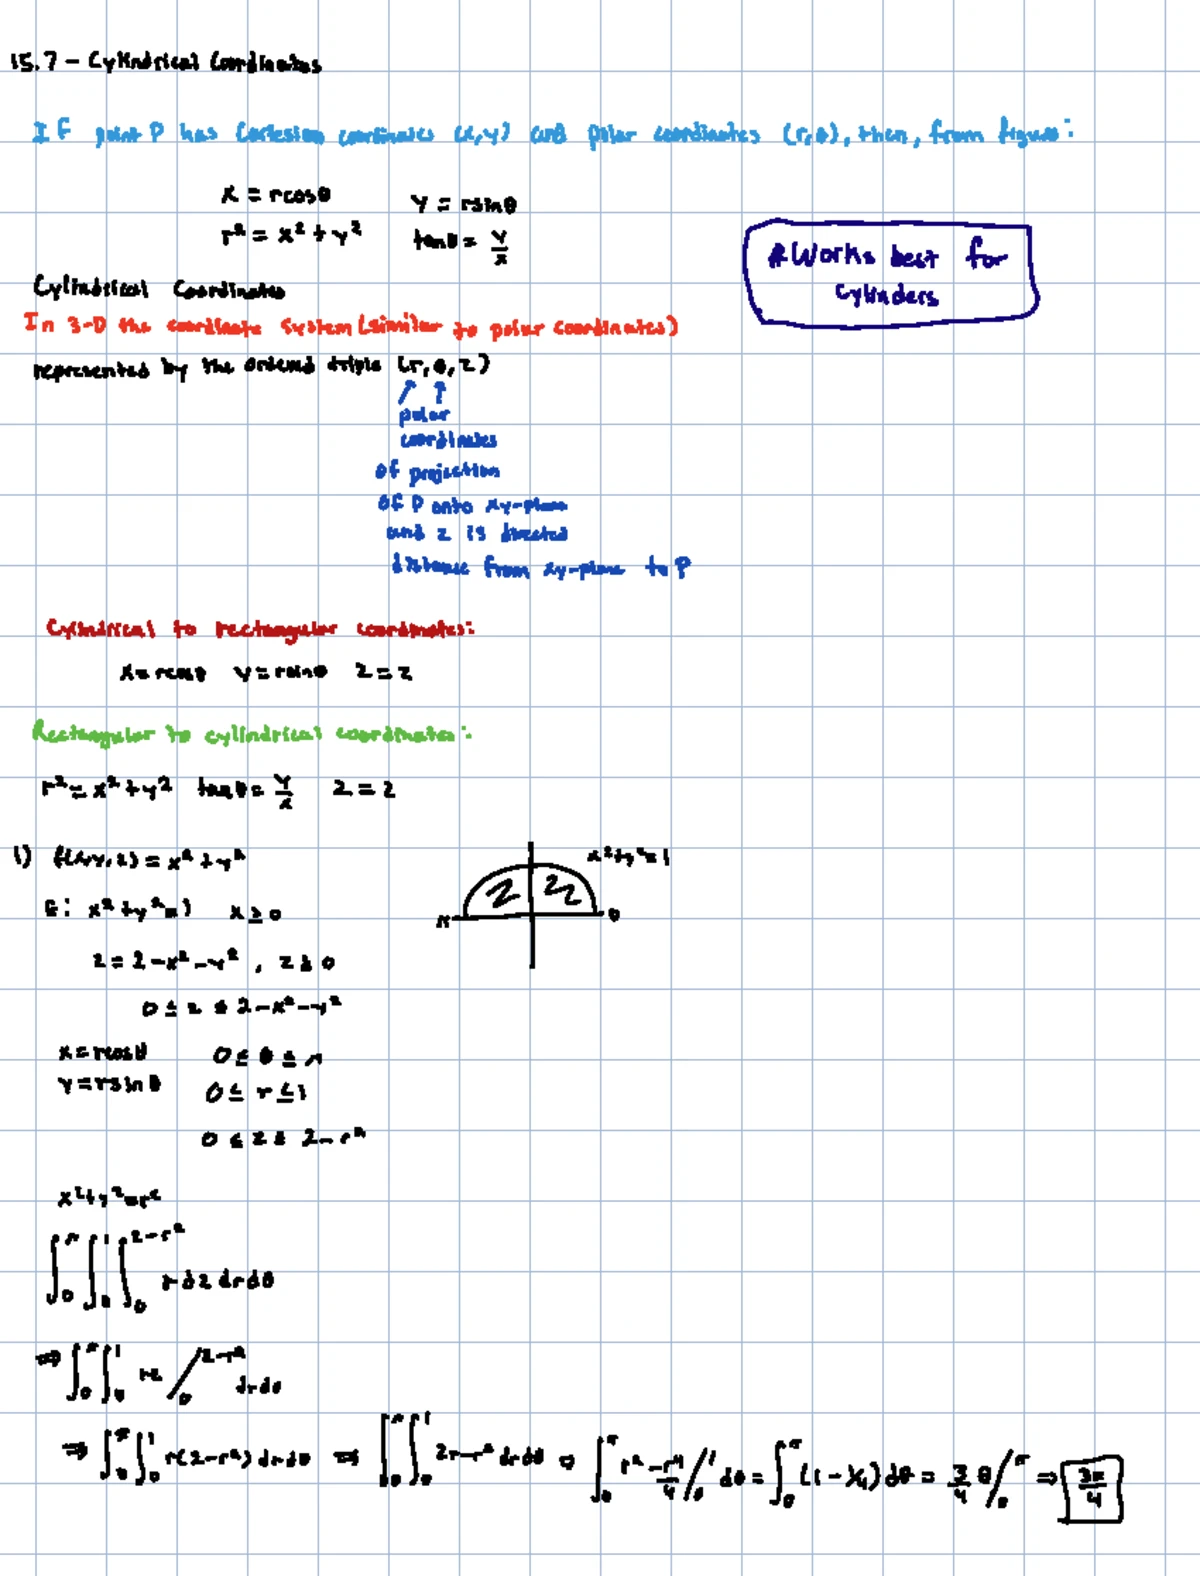 15.7 - Cylindrical Coordinates
If point P has Cartesian coordinates (x,y) and polar coordinates (r,θ), then, from figure:
x = rcosθ y = rsinθ
r² = x² + y² tanθ = y/x
*Works best for
Cylinders
Cylindrical Coordinates
In 3-D the coordinate system (similar to polar coordinates)
represented by the ordered triple (r, θ, z)
↗ ↑
polar
coordinates
of projection
of P onto xy-plane
and z is directed
distance from xy-plane to P
Cylindrical to rectangular coordinates:
x = rcosθ y = rsinθ z = z
Rectangular to cylindrical coordinates:
r² = x² + y² tanθ = y/x z = z
1) f(x,y,z) = x² + y²
x²+y²=1
E: x² + y² = 1 x ≥ 0
π 0
z = 2-x²-y², z ≥ 0
0 ≤ z ≤ 2-x²-y²
x = rcosθ 0 ≤ θ ≤ π
y = rsinθ 0 ≤ r ≤ 1
0 ≤ z ≤ 2-r²
x²+y²=r²
∫₀^π ∫₀^1 ∫₀^(2-r²) r dz dr dθ
⇒ ∫₀^π ∫₀^1 rz /₀^(2-r²) dr dθ
⇒ ∫₀^π ∫₀^1 r(2-r²) dr dθ ⇒ ∫₀^π ∫₀^1 2r-r³ dr dθ ⇒ ∫₀^π r² - r⁴/4 /₀^1 dθ = ∫₀^π (1 - 1/4) dθ = 3/4 θ /₀^π ⇒ 3π/4